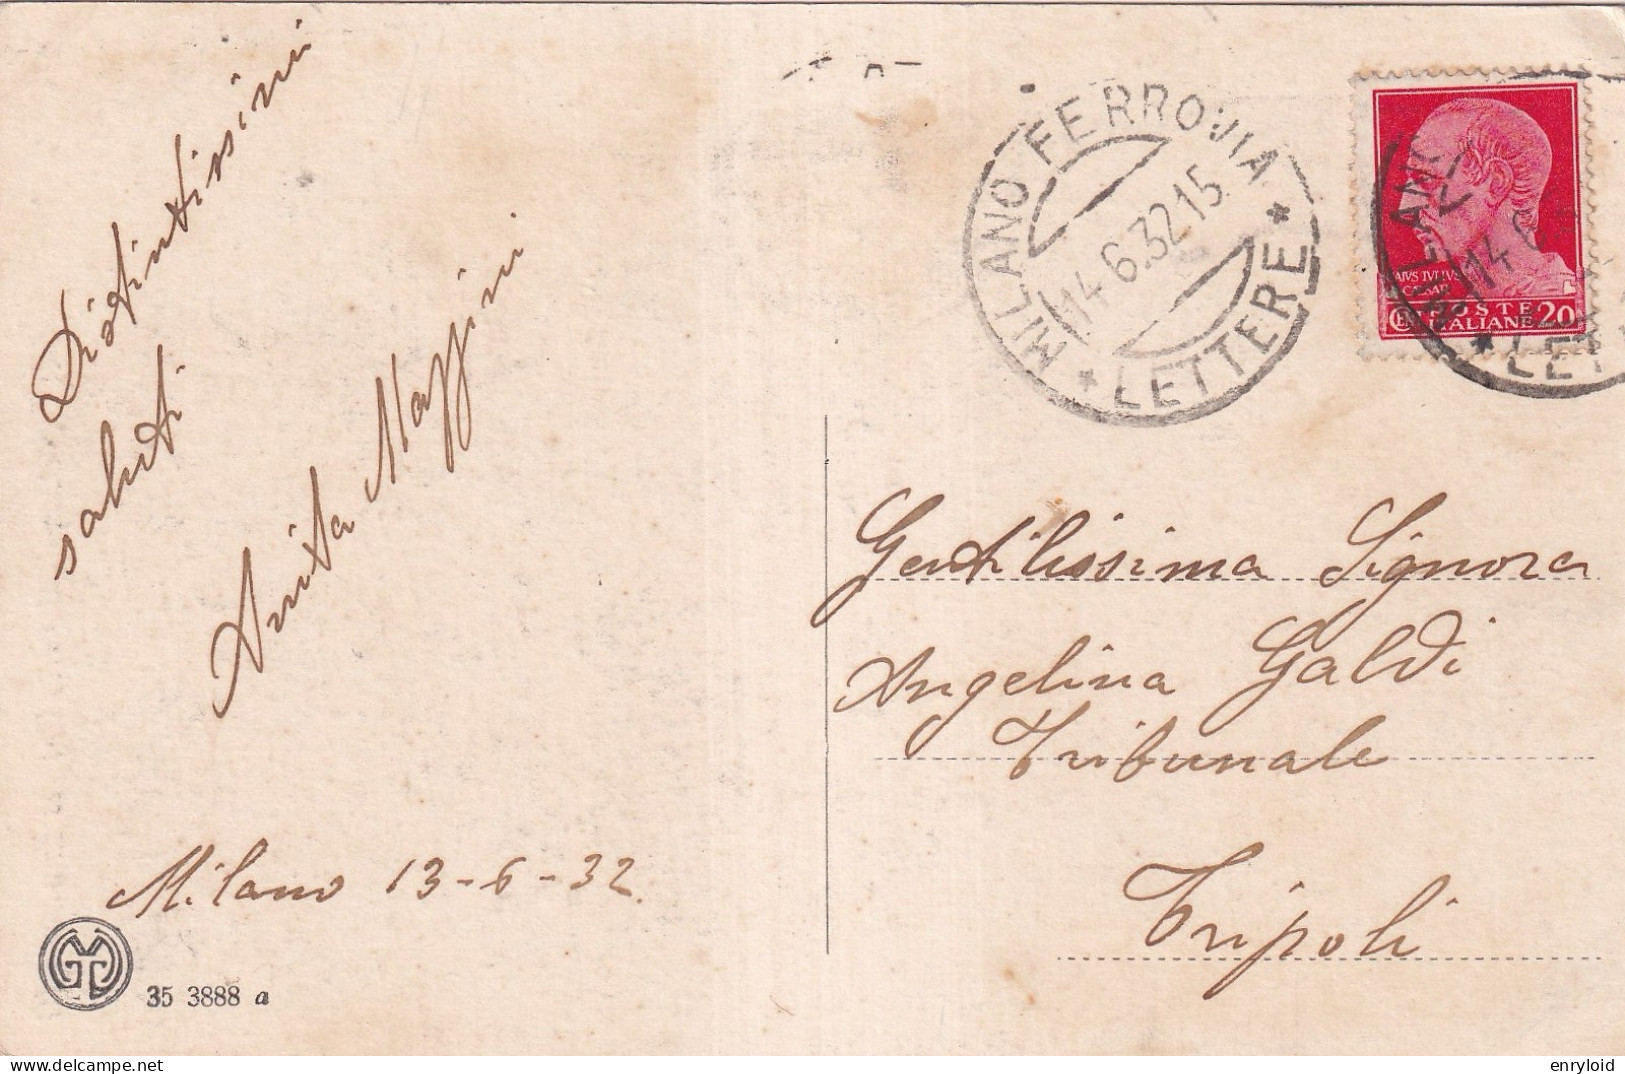 Distintissimi
saluti
Anita Mazzini
Milano 13-6-32
35 3888 a
MILANO FERROVIA
14.6.32.15
* LETTERE *
IVLIVS
CAESAR
POSTE
ITALIANE 20
MILANO
14 6
* LETT
Gentilissima Signora
Angelina Galdi
Tribunale
Tripoli
delcampe.net
enryloid